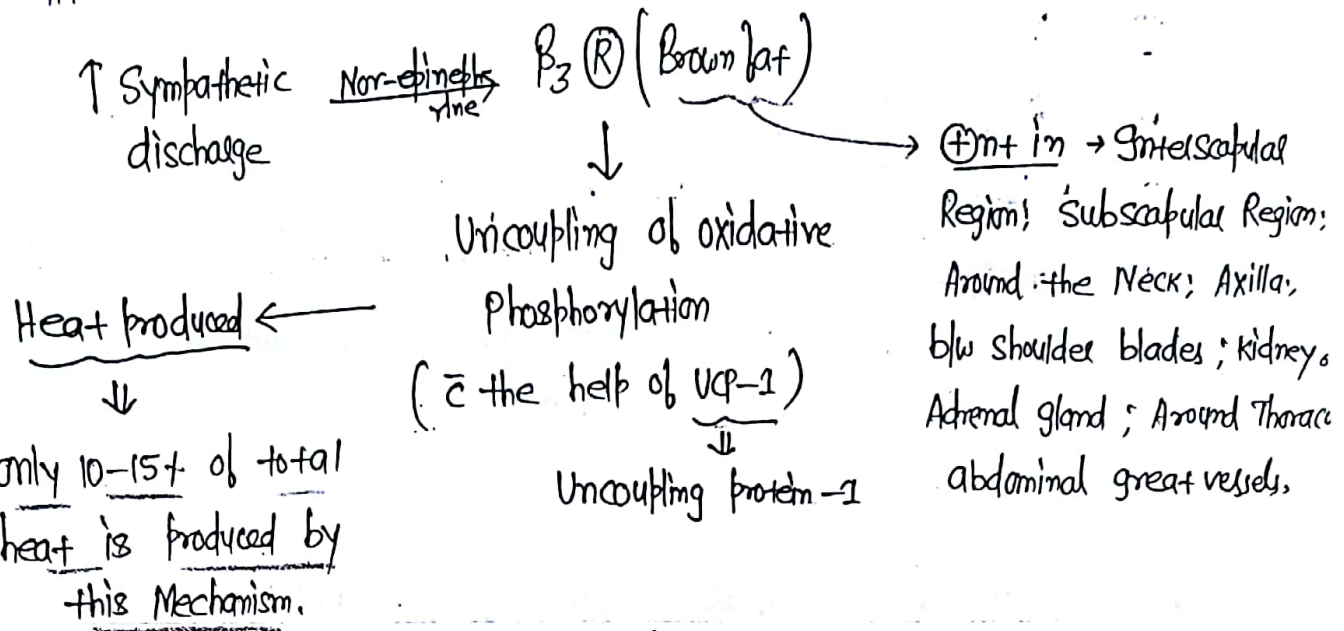 ↑ Sympathetic discharge
Nor-epineph rine →
β3 Ⓡ (Brown fat)
↓
Uncoupling of oxidative
Phosphorylation
(c̄ the help of UCP-1)
⇓
Uncoupling protein-1
Heat produced ←
⇓
only 10-15% of total
heat is produced by
this Mechanism.
→ ⊕nt in → Interscapular
Region; Subscapular Region;
Around the Neck; Axilla,
b/w shoulder blades; kidney,
Adrenal gland; Around Thorac
abdominal great vessels.